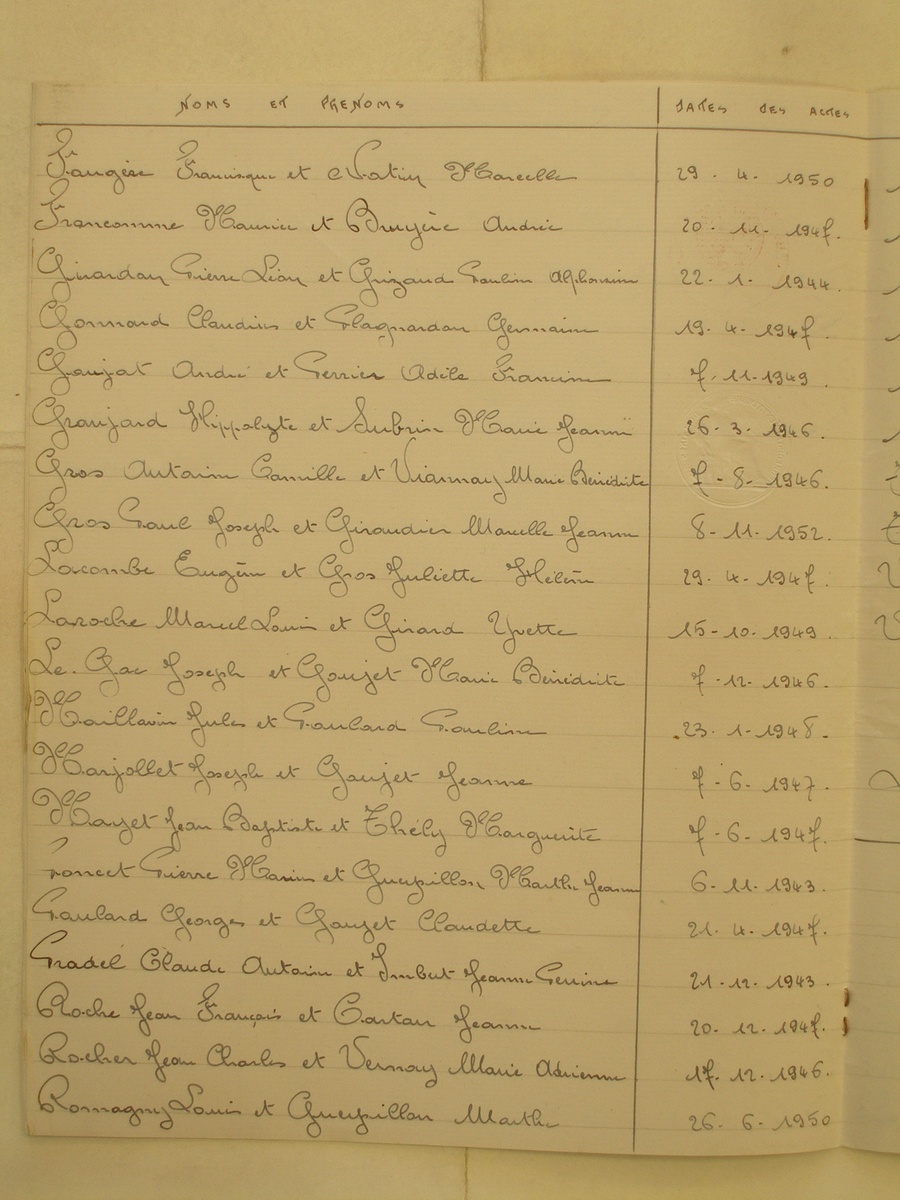 NOMS ET PRENOMS DATES DES ACTES
Faugère Francisque et Natin Marcelle 29. 4. 1950
Francomme Maurice et Bruyère Andrée 20. 11. 1947.
Girardon Pierre Léon et Grizaud Pauline Alphonsine 22. 1. 1944.
Gonnard Claudius et Plagnardon Germaine 19. 4. 1947.
Goujat André et Perrier Adèle Francine 7. 11. 1949.
Granjard Hippolyte et Subrin Marie Jeanne 26. 3. 1946.
Gros Antoine Camille et Viannay Marie Bénédicte 7 - 8 - 1946.
Gros Paul Joseph et Giraudier Marcelle Jeanne 8 - 11 - 1952.
Lacombe Eugène et Gros Juliette Hélène 29. 4. 1947.
Laroche Marcel Louis et Girard Yvette 15 - 10. 1949.
Le Gac Joseph et Goujet Marie Bénédicte 7 - 12. 1946.
Maillavin Jules et Paulard Pauline 23. 1. 1948.
Marjollet Joseph et Goujet Jeanne 7 - 6. 1947.
Mayet Jean Baptiste et Thély Marguerite 7 - 6. 1947.
Poncet Pierre Marius et Guepillon Marthe Jeanne 6. 11. 1943.
Paulard Georges et Goujet Claudette 21. 4. 1947.
Pradel Claude Antoine et Imbert Jeanne Perrine 21. 12. 1943.
Roche Jean François et Cartan Jeanne 20. 12. 1947.
Rocher Jean Charles et Vernay Marie Adrienne 17. 12. 1946.
Romagny Louis et Guepillon Marthe 26. 6. 1950